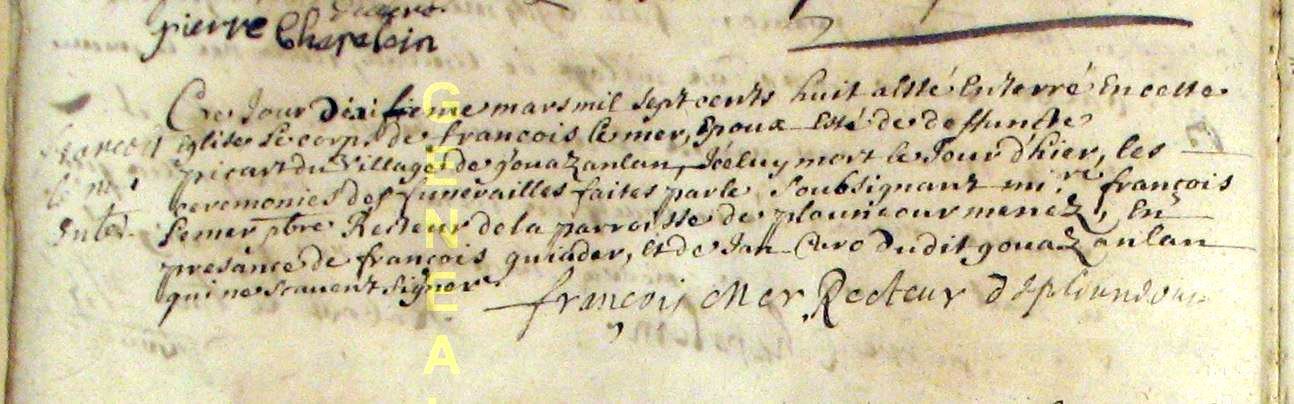 pierre Chapelain
Ce Jour dixième mars mil sept cents huit a esté Enterré En cette
Eglise Le corps de francois Le mer, Epoux Esté de deffuncte
picart du Village de gouazanlan, Iceluy mort le Jour d'hier, les
ceremonies des funérailles faites par le Soubsignant françois
Lemer ptre Recteur de la parroisse de plouneour menez, En
presance de francois guiader, Et de Jan dudit gouazanlan
qui ne scavent signer
francois Mer Recteur
francois
le mer
GENEAL